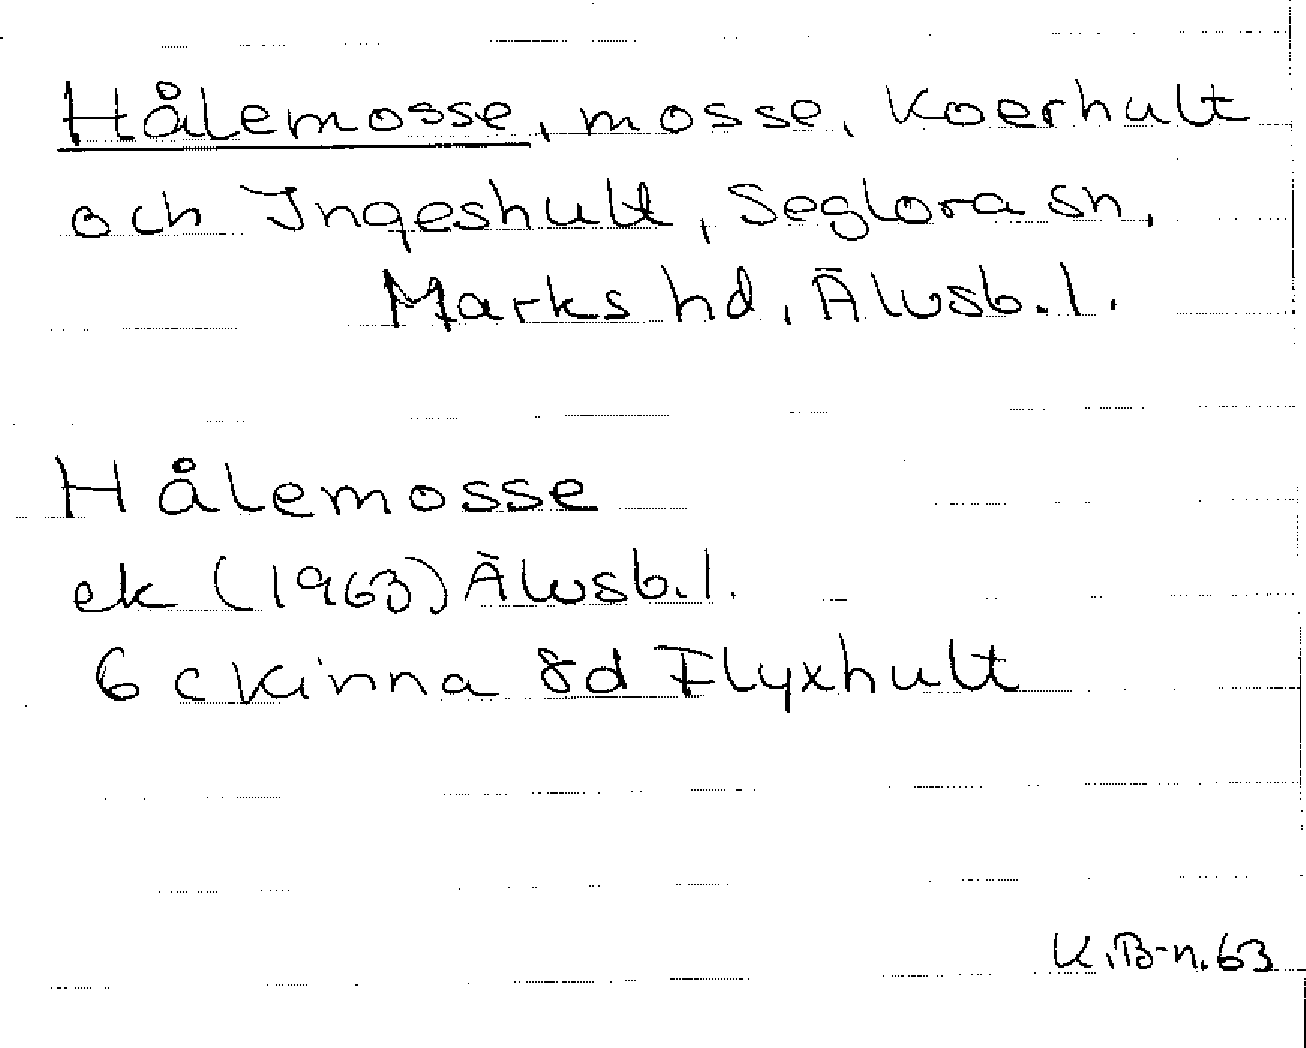 Hålemosse, mosse, Koerhult
och Ingeshult, Seglora sn,
Marks hd, Älvsb. l.
Hålemosse
ek (1963) Älvsb. l.
6 c Kinna 8d Flyxhult
K.B-n. 63